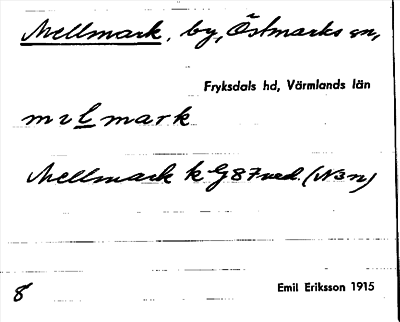 Mellmark, by, Östmarks sn,
Fryksdals hd, Värmlands län
mark
Mellmark k G87 ved. (N3n)
Emil Eriksson 1915
8